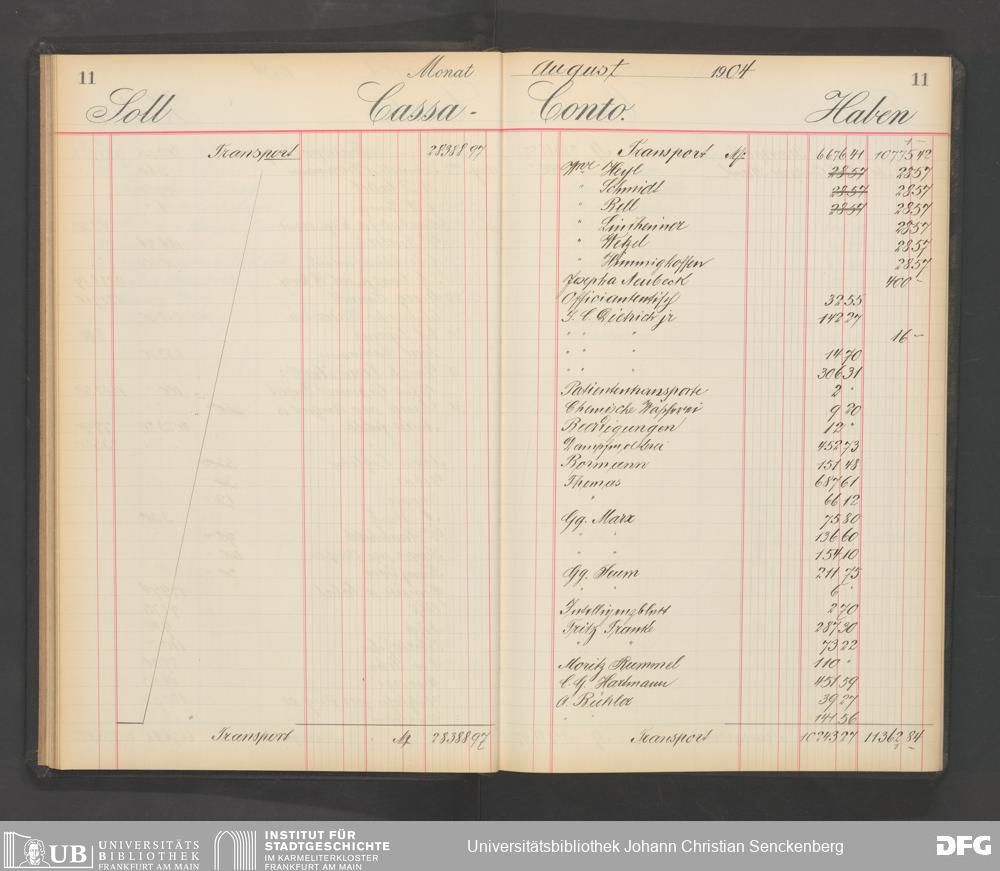 11 Monat August 1904 11
Soll Cassa - Conto. Haben
Transport 28388 97
Transport M 28388 97
Transport M 6676 41 10775 42
Heyl 28 57 28 57
" Schmidt 28 57 28 57
" Rell 28 57 28 57
" 28 57
" Wetzel 28 57
" Himmighoffen 28 57
Josepha Neubeck 400 -
Officiantentisch 32 55
Dietrich jr 142 27
" " " 16 -
" " " 14 70
" " " 306 31
Patiententransporte 2 "
Chemische 9 20
Beerdigungen 12 "
Dampfmolkerei 452 73
Bormann 151 48
Thomas 687 61
" 66 12
Gg. Marx 75 80
" " 136 60
" " 154 10
Gg. Heum 211 75
" " 6 "
Intelligenzblatt 2 70
Fritz Franke 287 30
" " 73 22
Moritz Rummel 110 "
C. G. Hartmann 451 39
A. Richter 39 27
" " 141 56
Transport 10243 27 11362 84
UB UNIVERSITÄTS
BIBLIOTHEK
FRANKFURT AM MAIN
INSTITUT FÜR
STADTGESCHICHTE
IM KARMELITERKLOSTER
FRANKFURT AM MAIN
Universitätsbibliothek Johann Christian Senckenberg
DFG